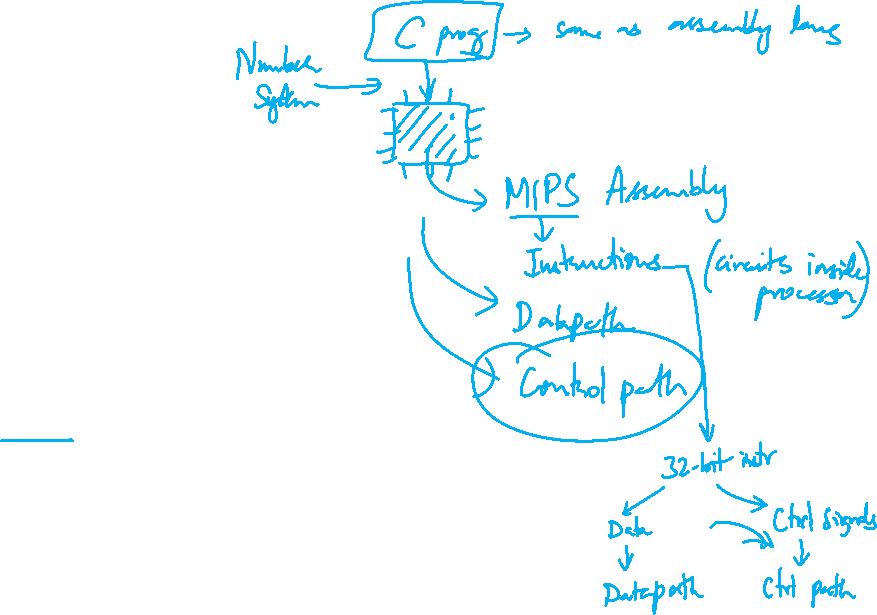 C prog → same as assembly lang
Number
System
MIPS Assembly
Instructions (circuits inside
processor)
Datapath
Control path
32-bit instr
Data Ctrl signals
Datapath Ctrl path